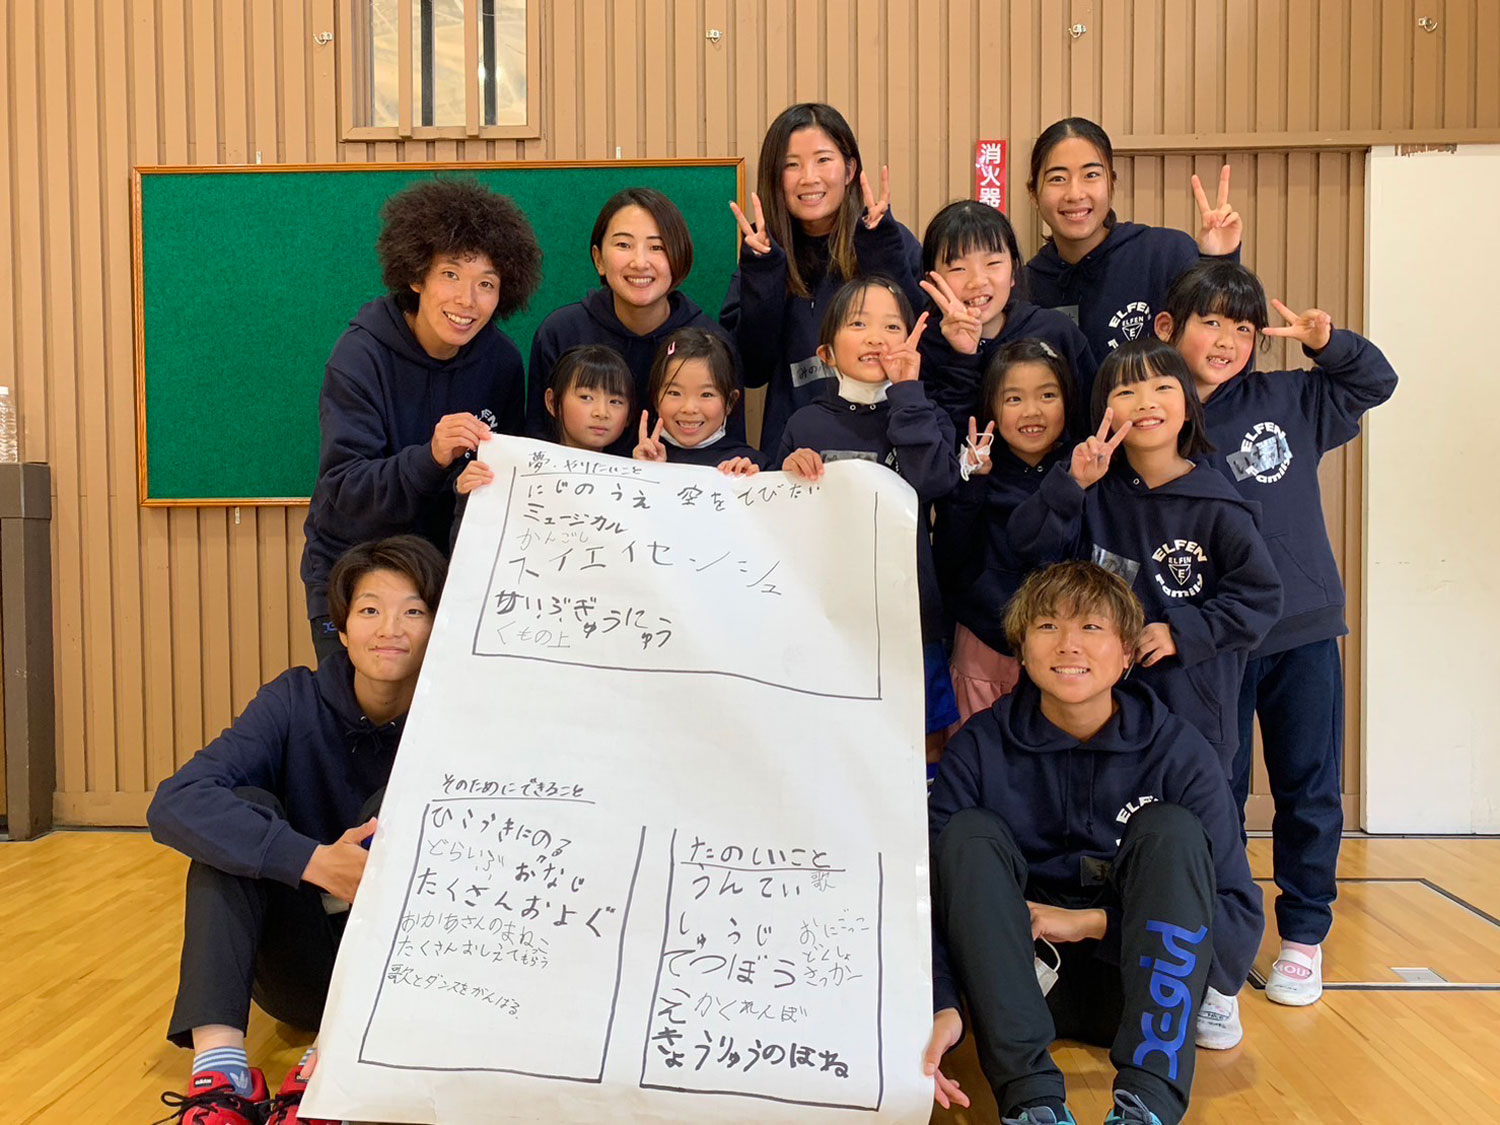 消火器
夢・やりたいこと
にじのうえ 空をとびたい
ミュージカル
かんごし
スイエイセンシュ
せいぶぎゅうにゅう
くもの上
そのためにできること
ひこうきにのる
どらいぶ
たくさんおよぐ
おかあさんのまねっこ
たくさんおしえてもらう
歌とダンスをがんばる。
たのしいこと
うんてい 歌
しゅうじ おにごっこ
てつぼう どんじょ
さっかー
え かくれんぼ
きょうりゅうのほね
ELFEN
ELFEN
E
Family
ELFEN
E
Family
X-girl